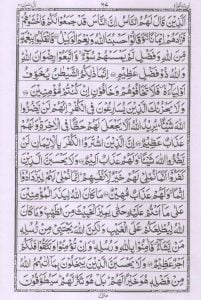 ٦٧
اَلَّذِيْنَ قَالَ لَهُمُ النَّاسُ اِنَّ النَّاسَ قَدْ جَمَعُوْا لَكُمْ فَاخْشَوْهُمْ
فَزَادَهُمْ اِيْمَانًا وَّقَالُوْا حَسْبُنَا اللّٰهُ وَنِعْمَ الْوَكِيْلُ فَانْقَلَبُوْا بِنِعْمَةٍ
مِّنَ اللّٰهِ وَفَضْلٍ لَّمْ يَمْسَسْهُمْ سُوْٓءٌ وَّاتَّبَعُوْا رِضْوَانَ اللّٰهِ
وَاللّٰهُ ذُوْ فَضْلٍ عَظِيْمٍ اِنَّمَا ذٰلِكُمُ الشَّيْطٰنُ يُخَوِّفُ
اَوْلِيَآءَهٗ فَلَا تَخَافُوْهُمْ وَخَافُوْنِ اِنْ كُنْتُمْ مُّؤْمِنِيْنَ
وَلَا يَحْزُنْكَ الَّذِيْنَ يُسَارِعُوْنَ فِى الْكُفْرِ اِنَّهُمْ لَنْ يَّضُرُّوا
اللّٰهَ شَيْئًا يُرِيْدُ اللّٰهُ اَلَّا يَجْعَلَ لَهُمْ حَظًّا فِى الْاٰخِرَةِ وَلَهُمْ
عَذَابٌ عَظِيْمٌ اِنَّ الَّذِيْنَ اشْتَرَوُا الْكُفْرَ بِالْاِيْمَانِ لَنْ
يَّضُرُّوا اللّٰهَ شَيْئًا وَلَهُمْ عَذَابٌ اَلِيْمٌ وَلَا يَحْسَبَنَّ الَّذِيْنَ
كَفَرُوْٓا اَنَّمَا نُمْلِيْ لَهُمْ خَيْرٌ لِّاَنْفُسِهِمْ اِنَّمَا نُمْلِيْ لَهُمْ لِيَزْدَادُوْٓا
اِثْمًا وَلَهُمْ عَذَابٌ مُّهِيْنٌ مَا كَانَ اللّٰهُ لِيَذَرَ الْمُؤْمِنِيْنَ
عَلٰى مَآ اَنْتُمْ عَلَيْهِ حَتّٰى يَمِيْزَ الْخَبِيْثَ مِنَ الطَّيِّبِ وَمَا كَانَ
اللّٰهُ لِيُطْلِعَكُمْ عَلَى الْغَيْبِ وَلٰكِنَّ اللّٰهَ يَجْتَبِيْ مِنْ رُّسُلِهٖ
مَنْ يَّشَآءُ فَاٰمِنُوْا بِاللّٰهِ وَرُسُلِهٖ وَاِنْ تُؤْمِنُوْا وَتَتَّقُوْا فَلَكُمْ
اَجْرٌ عَظِيْمٌ وَلَا يَحْسَبَنَّ الَّذِيْنَ يَبْخَلُوْنَ بِمَآ اٰتٰىهُمُ اللّٰهُ
مِنْ فَضْلِهٖ هُوَ خَيْرًا لَّهُمْ بَلْ هُوَ شَرٌّ لَّهُمْ سَيُطَوَّقُوْنَ